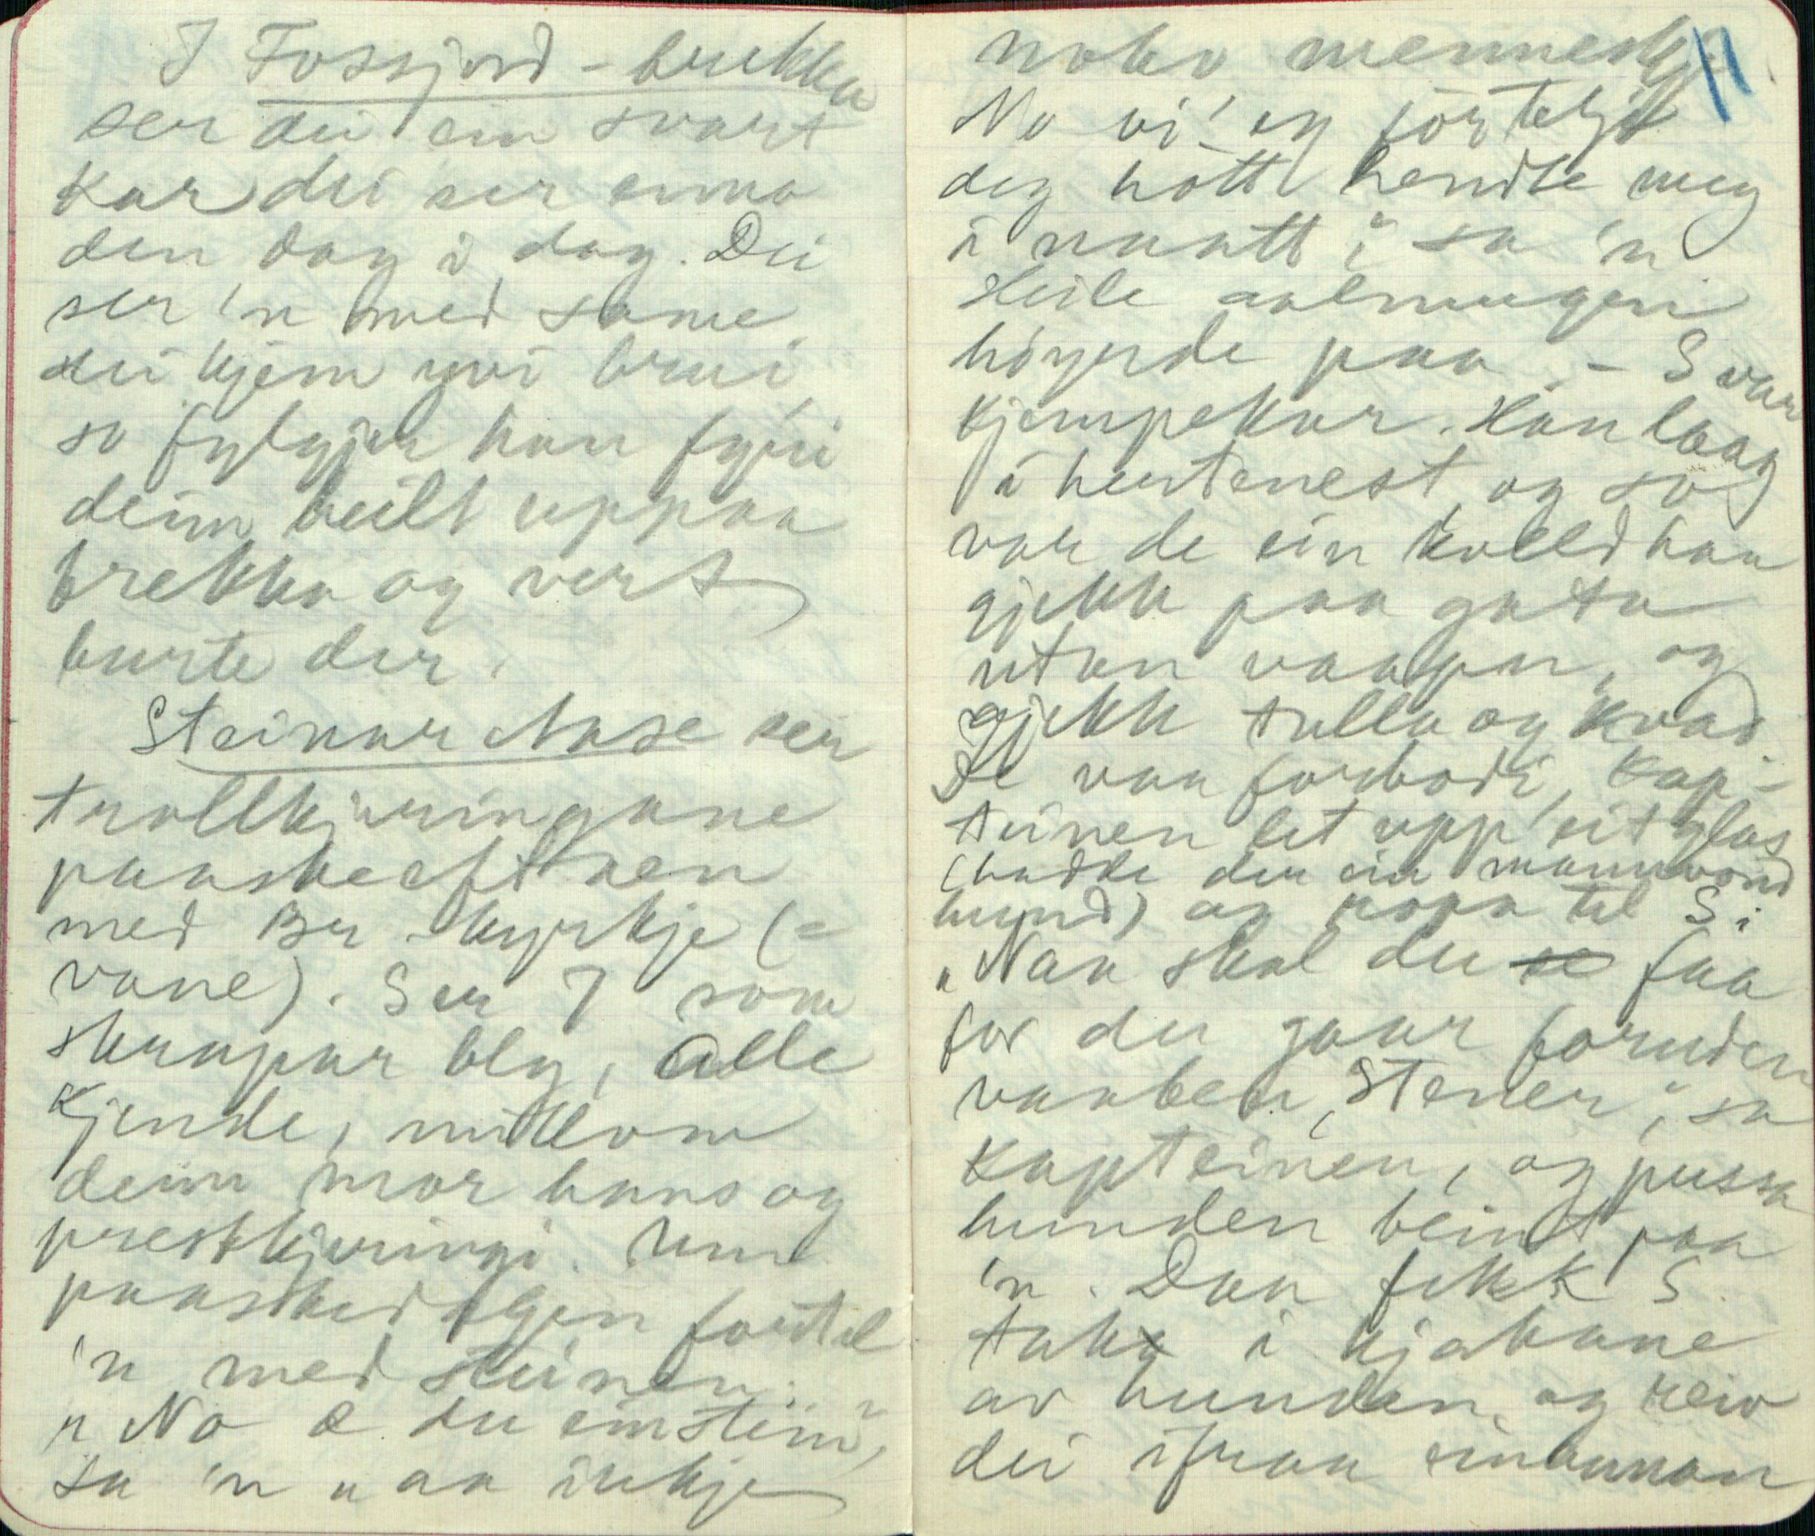 I Fossjord-brekka
ser dei ein svart
kar dei ser enno
den dag i dag. Dei
ser 'n med same
dei kjem yvi brui,
so fylgjer han fyri
deim heilt uppaa
brekka og vert
burte der.
Steinar Nase ser
trollkjeringane
paaskeeftaen
med Bø kyrkje (=
vane). Ser 7 som
skrapar bly, alle
kjende, millom
deim mor hans og
prestkjeringi. Um
paaskedagen fortel
'n med steinen.
"No æ du ein stein",
sa 'n "aa inkje
noko menneskj.
11
No vi' eg förtelja
deg hött hendte meg
i naatt", sa 'n.
Heile aalmugen
höyrde paa. – S var
kjempekar. Han laag
i hertenest, og so
var de ein kveld han
gjekk paa gata
utan vaapn, og
gjekk tulla og kvad.
De var forbodi, kap-
teinen let upp eit glas
(hadde der ein mannvond
hund) og ropa til S:
"Naa skal du se faa
for du gaar foruden
vaaben, Stener", sa
kapteinen, og pussa
hunden beint paa
'n. Daa fekk S.
taka i kjakane
av hunden, og reiv
dei ifraa einannan